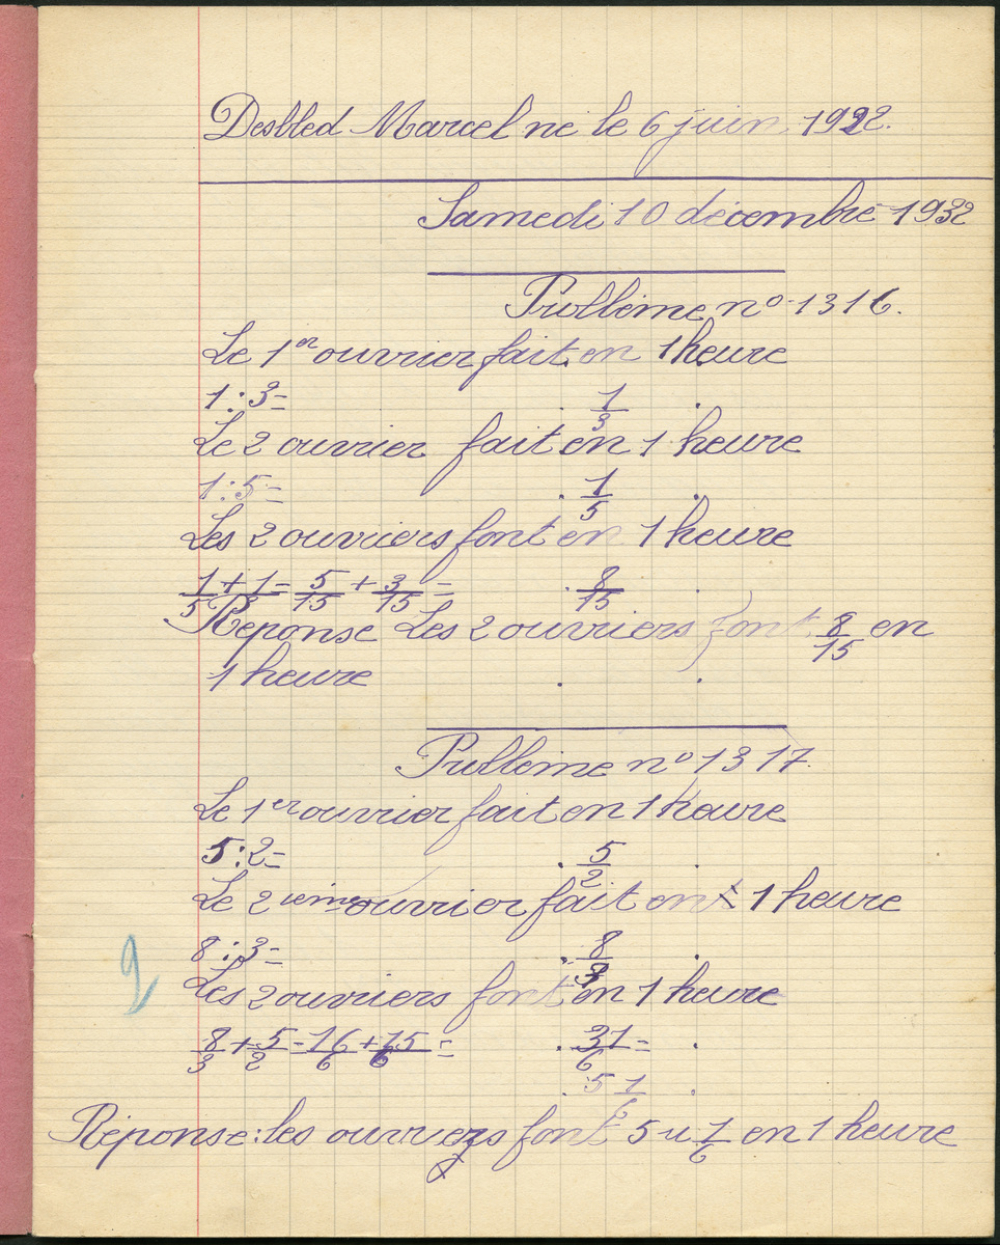 Desbled Marcel né le 6 juin 1922.
Samedi 10 décembre 1932
Problème n° 1316.
Le 1er ouvrier fait en 1 heure
1 : 3 = 1/3
Le 2 ouvrier fait en 1 heure
1 : 5 = 1/5
Les 2 ouvriers font en 1 heure
1/5 + 1/3 = 5/15 + 3/15 = 8/15
Réponse Les 2 ouvriers font 8/15 en
1 heure
Problème n° 1317.
Le 1er ouvrier fait en 1 heure
5 : 2 = 5/2
Le 2ième ouvrier fait en 1 heure
8 : 3 = 8/3
Les 2 ouvriers font en 1 heure
8/3 + 5/2 = 16/6 + 15/6 = 31/6 =
5 1/6
Réponse : les ouvriers font 5 u 1/6 en 1 heure
2